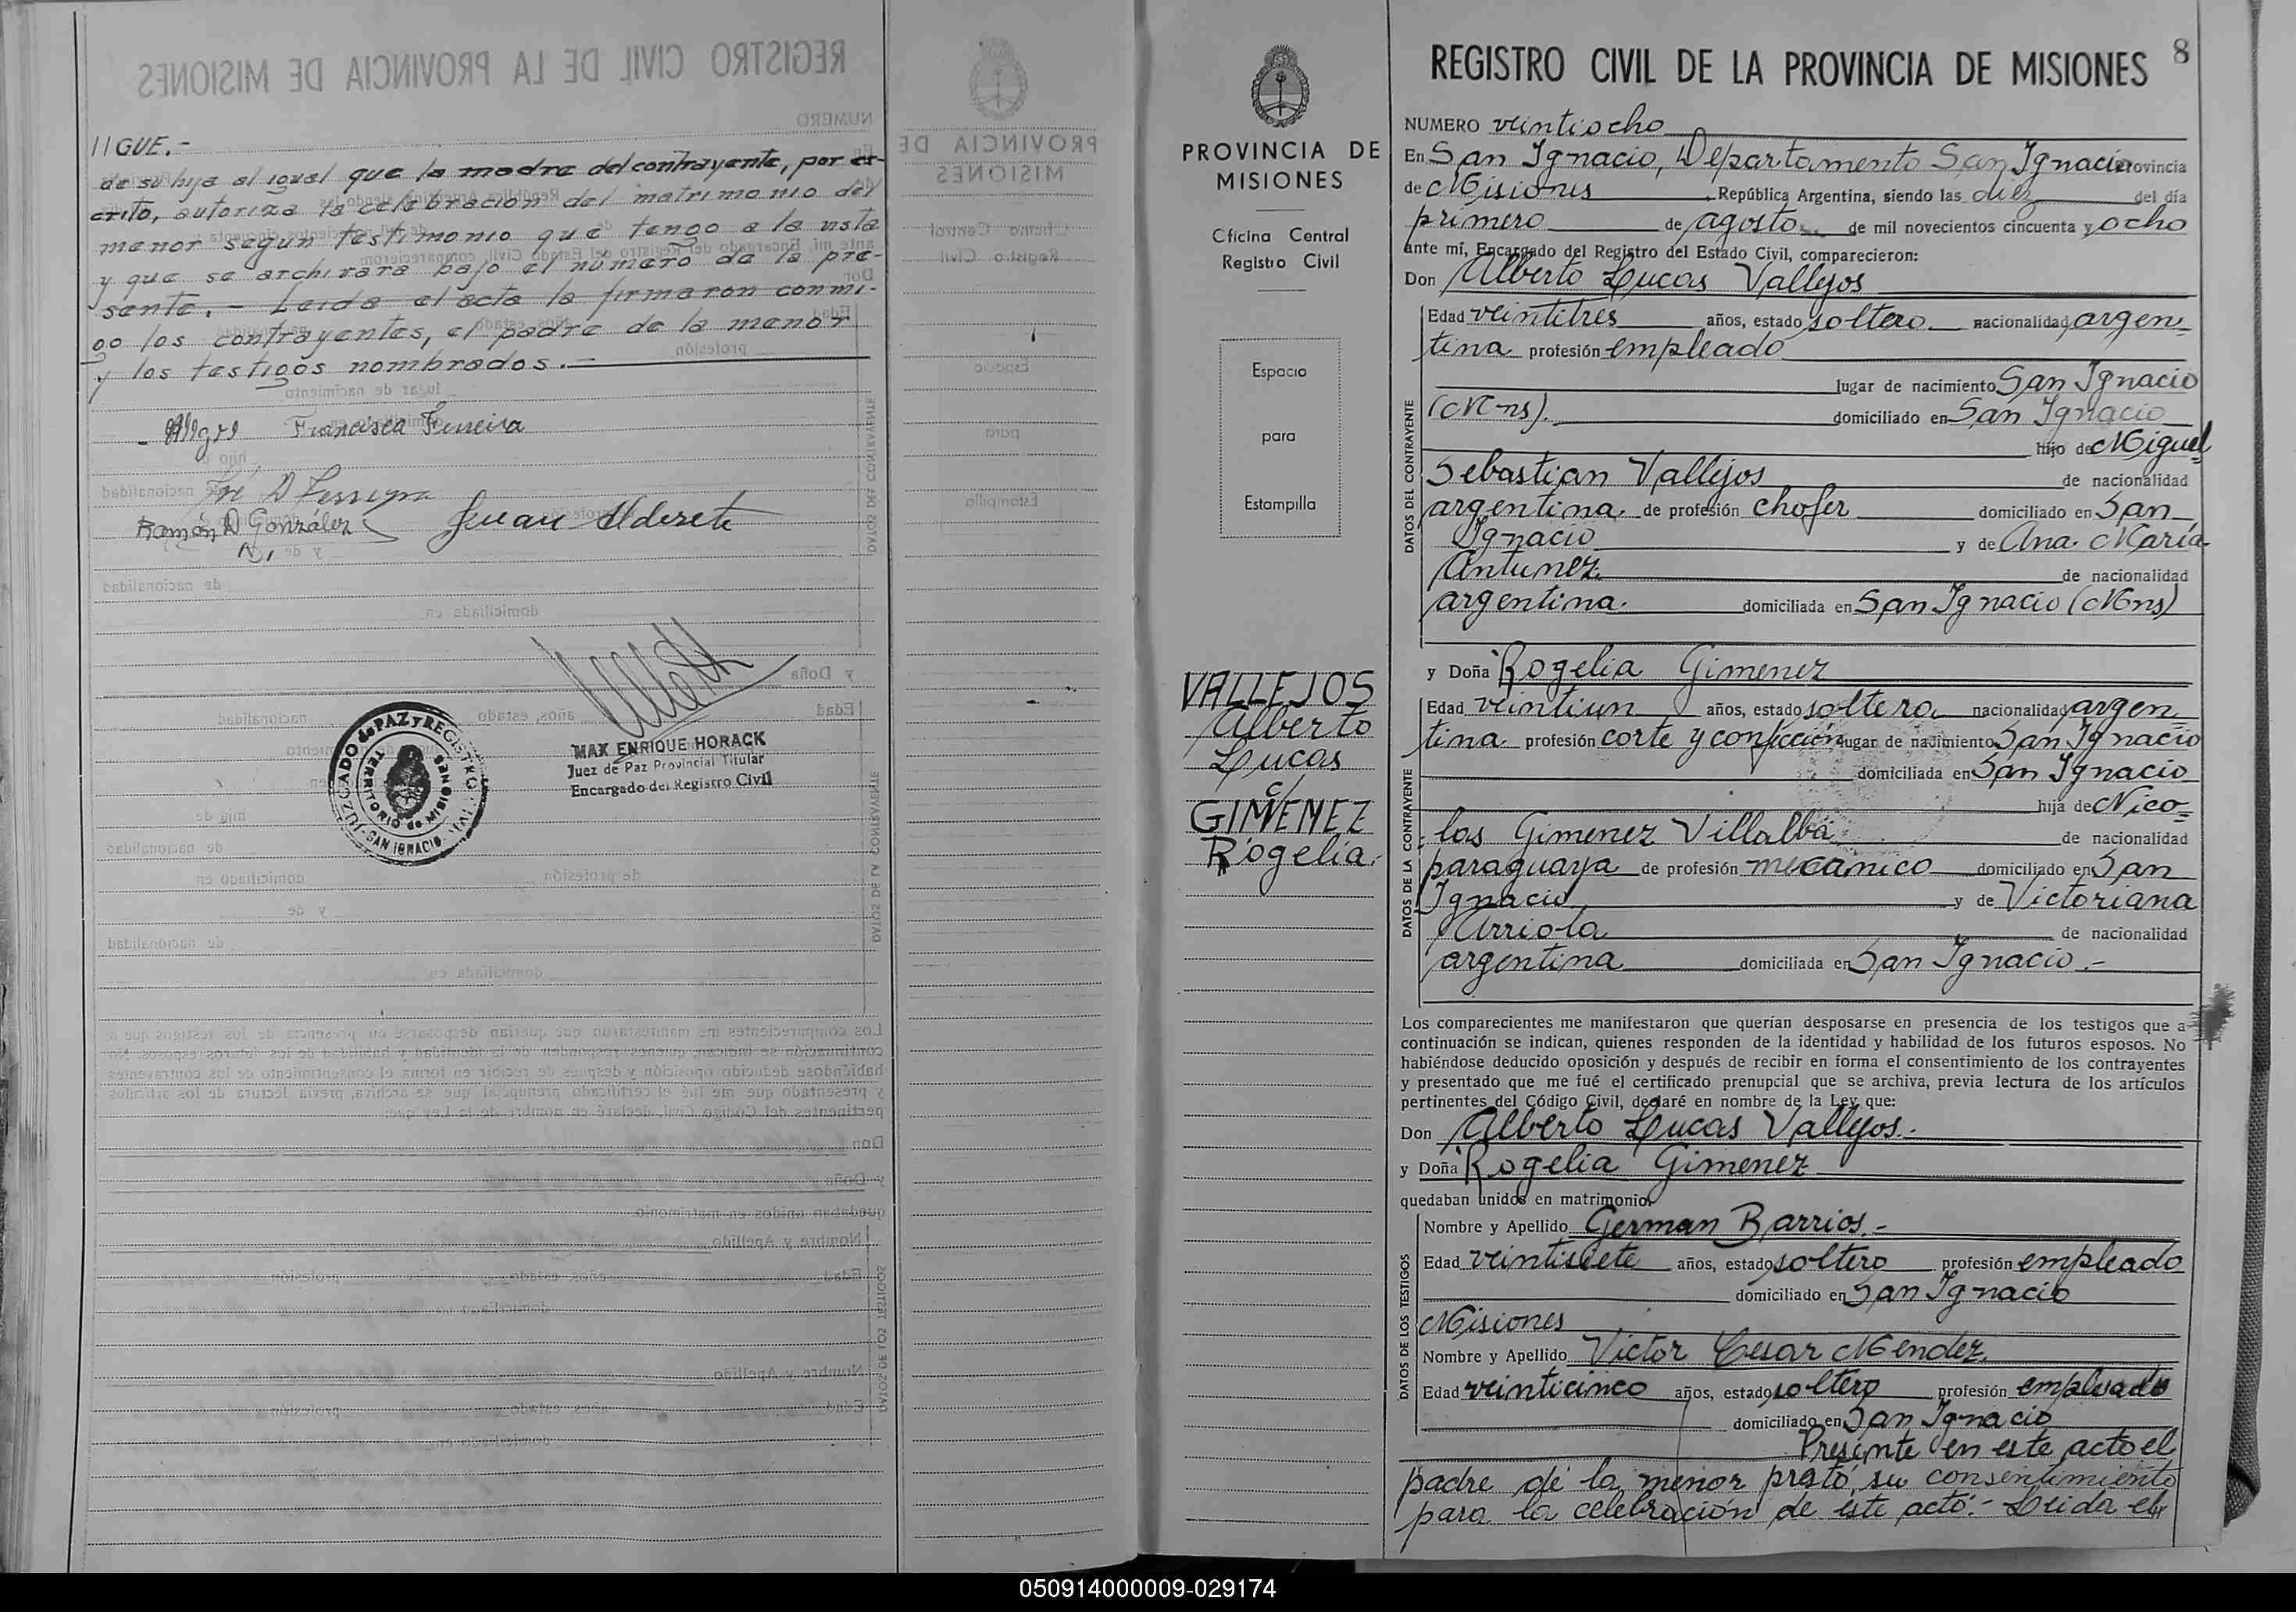 IIGUE.-
de su hija al igual que la madre del contrayente, por es-
crito, autoriza la celebración del matrimonio del
menor según testimonio que tengo a la vista
y que se archivará bajo el número de la pre-
sente. - Leida el acta la firmaron conmi-
go los contrayentes, el padre de la menor
y los testigos nombrados.-
Francisca Ferreira
Ramón D González
Juan Alderete
MAX ENRIQUE HORACK
Juez de Paz Provincial Titular
Encargado del Registro Civil
JUZGADO de PAZ y REGISTRO CIVIL
TERRITORIO de MISIONES
SAN IGNACIO
PROVINCIA DE
MISIONES
Oficina Central
Registro Civil
Espacio
para
Estampilla
VALLEJOS
Alberto
Lucas
c/
GIMENEZ
Rogelia.
8
REGISTRO CIVIL DE LA PROVINCIA DE MISIONES
NUMERO veintiocho
En San Ignacio, Departamento San Ignacio Provincia
de Misiones, República Argentina, siendo las diez del día
primero de agosto de mil novecientos cincuenta y ocho
ante mí, Encargado del Registro del Estado Civil, comparecieron:
Don Alberto Lucas Vallejos
DATOS DEL CONTRAYENTE
Edad veintitres años, estado soltero nacionalidad argen-
tina profesión empleado
lugar de nacimiento San Ignacio
(Mns). domiciliado en San Ignacio
hijo de Miguel
Sebastian Vallejos de nacionalidad
argentina de profesión chofer domiciliado en San
Ignacio y de Ana María
Antunez de nacionalidad
argentina. domiciliada en San Ignacio (Mns)
y Doña Rogelia Gimenez
DATOS DE LA CONTRAYENTE
Edad veintiun años, estado soltera nacionalidad argen-
tina profesión corte y confección lugar de nacimiento San Ignacio
domiciliada en San Ignacio
hija de Nico-
las Gimenez Villalba de nacionalidad
paraguaya de profesión mecanico domiciliado en San
Ignacio y de Victoriana
Arriola de nacionalidad
argentina domiciliada en San Ignacio.-
Los comparecientes me manifestaron que querían desposarse en presencia de los testigos que a
continuación se indican, quienes responden de la identidad y habilidad de los futuros esposos. No
habiéndose deducido oposición y después de recibir en forma el consentimiento de los contrayentes
y presentado que me fué el certificado prenupcial que se archiva, previa lectura de los artículos
pertinentes del Código Civil, declaré en nombre de la Ley que:
Don Alberto Lucas Vallejos.-
y Doña Rogelia Gimenez
quedaban unidos en matrimonio.
DATOS DE LOS TESTIGOS
Nombre y Apellido German Barrios.-
Edad veintisiete años, estado soltero profesión empleado
domiciliado en San Ignacio
Misiones
Nombre y Apellido Victor Cesar Mendez.
Edad veinticinco años, estado soltero profesión empleado
domiciliado en San Ignacio
Presente en este acto el
padre de la menor prestó su consentimiento
para la celebración de este acto.- Leida el
050914000009-029174